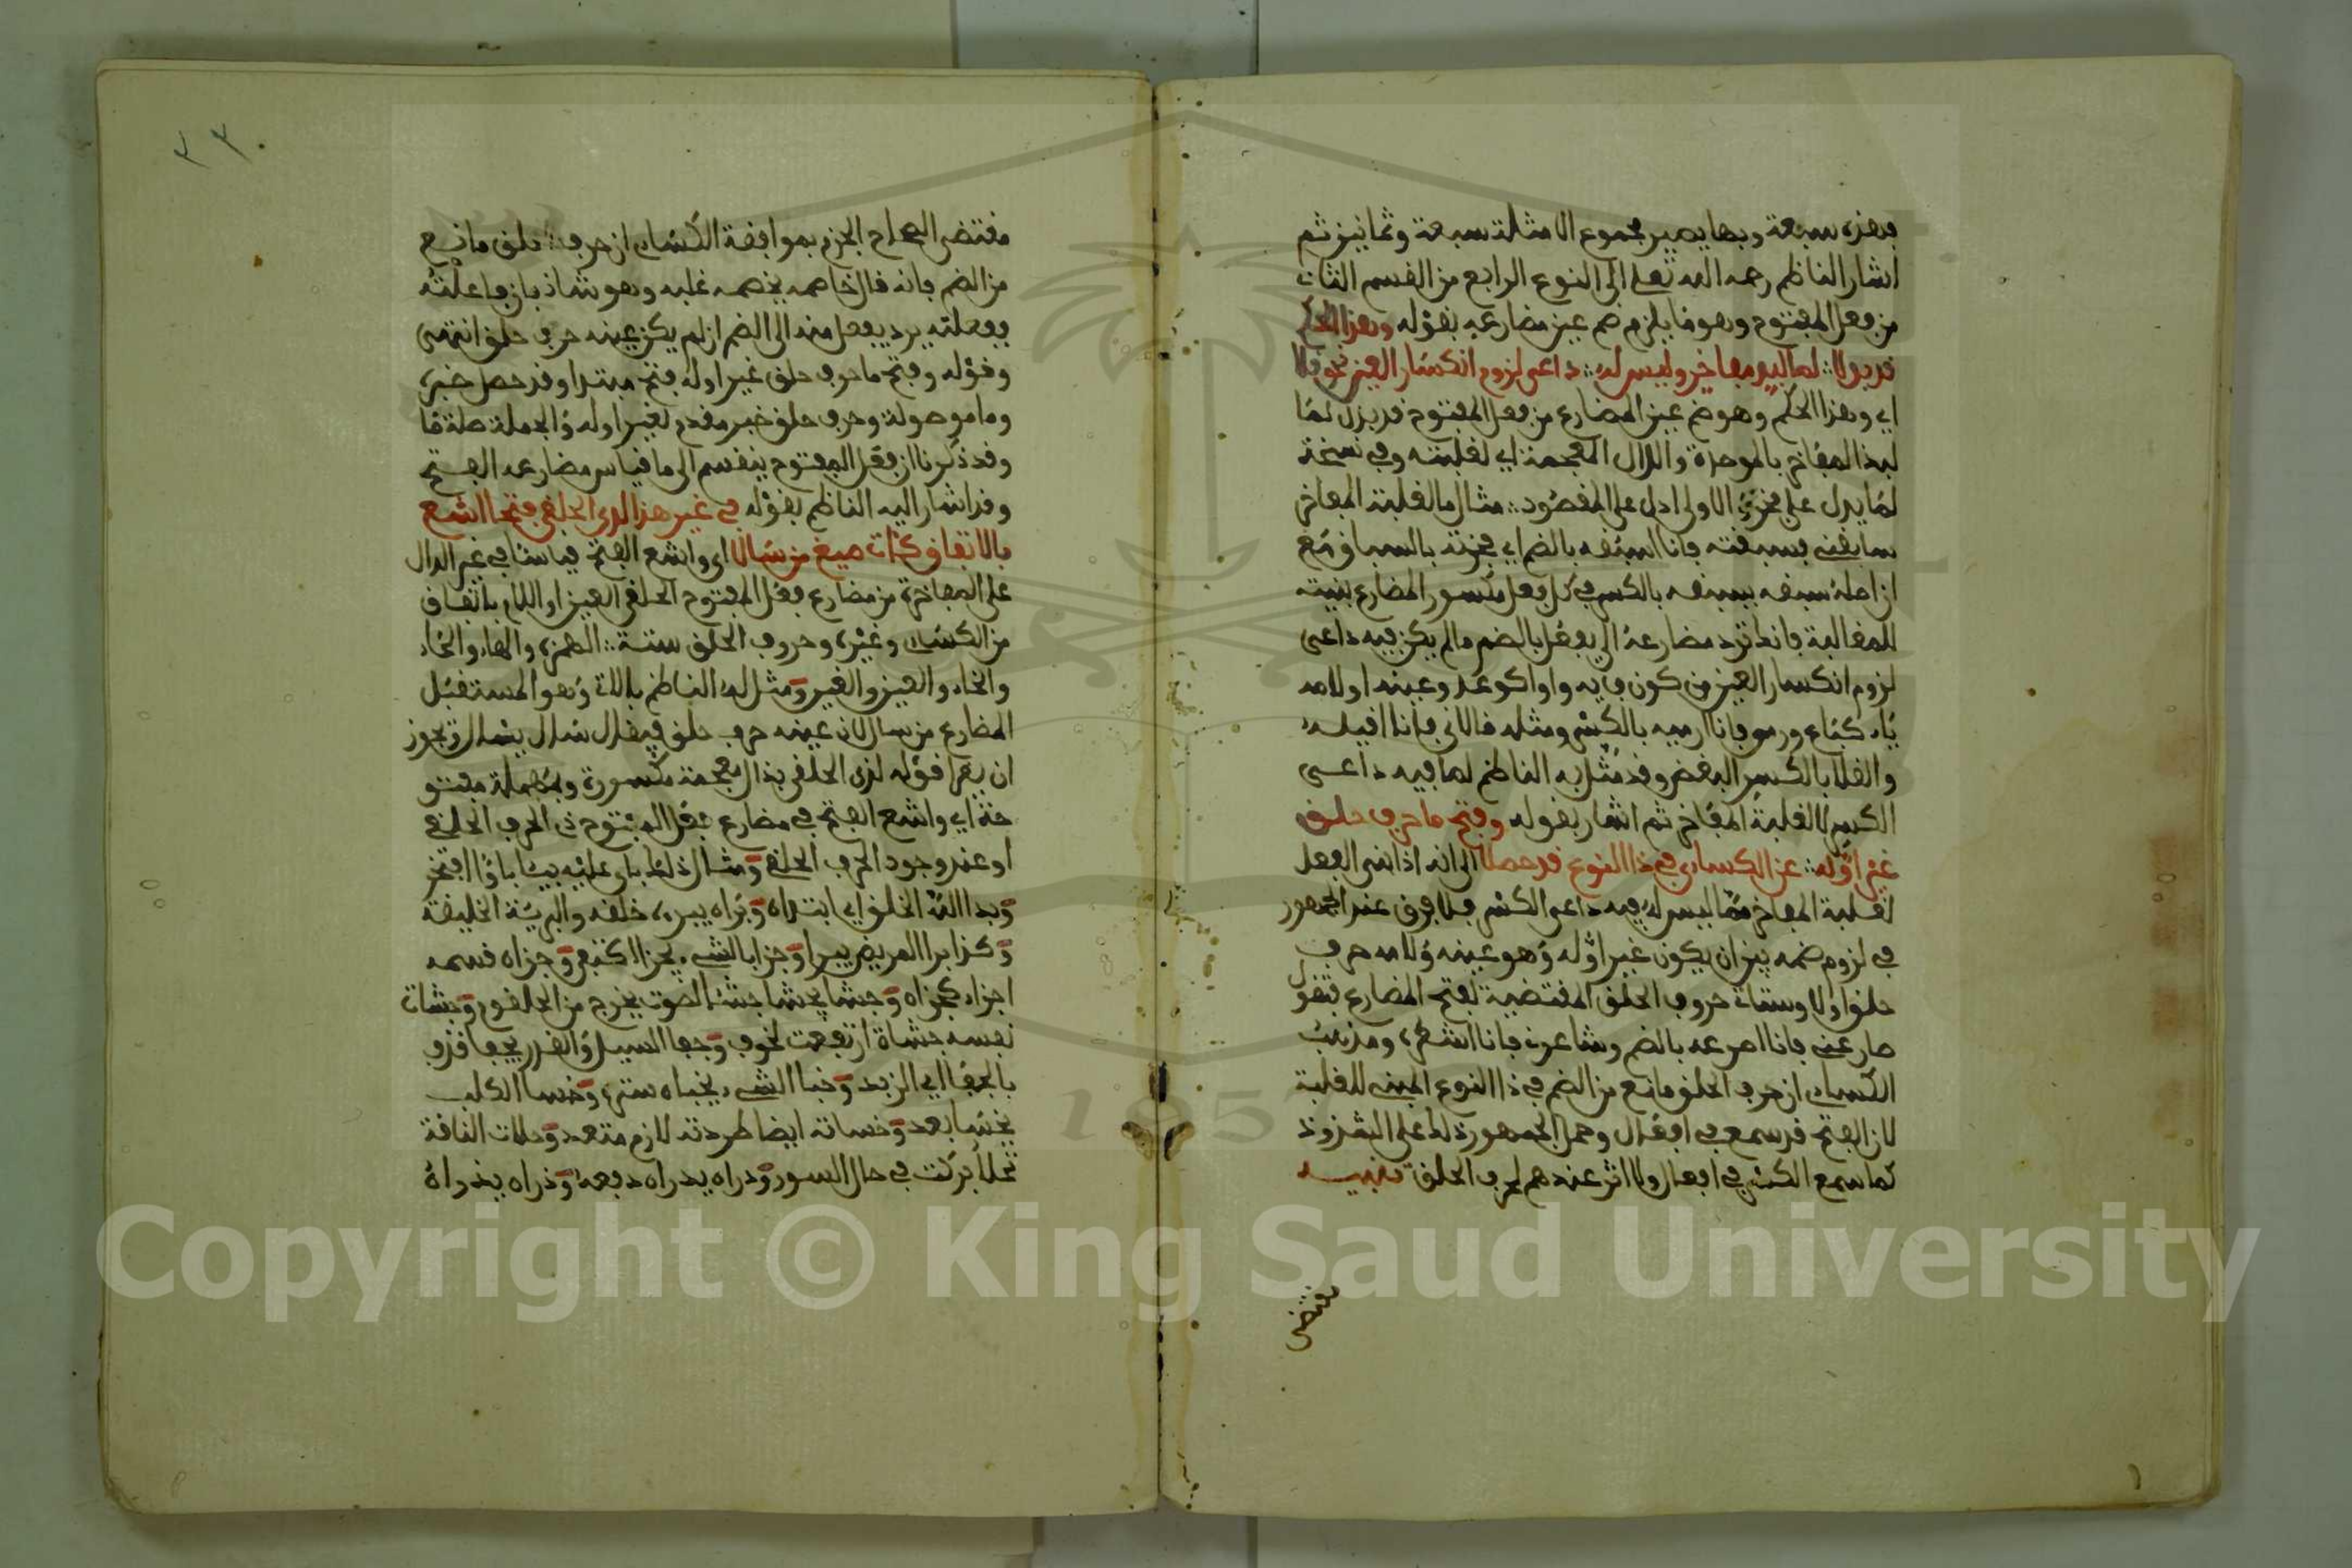 فهذه سبعة وبها يصير مجموع الامثلة سبعة وثمانين ثم
اشار الناظم رحمه الله تعلى الى النوع الرابع من القسم الثاني
من فعل المفتوح وهو ما يلزم ضم عين مضارعه بقوله وهذا الحكم
قد بذلا لما لبذ مفاخر وليس له داعى لزوم انكسار العين نحو قلا
اي وهذا الحكم وهو ضم عين المضارع من فعل المفتوح قد بذل لما
لبذ المفاخر بالموحدة والذال المعجمة اي لغلبته وفي نسخة
لما يدل على فخر الاولى ادل على المقصود مثال ما لغلبة المفاخر
سابقنى فسبقته فانا اسبقه بالضم اي فخرته بالسباق مع
ان اصله سبقه يسبقه بالكسر في كل فعل مكسور المضارع بنيته
للمغالبة فانك ترد مضارعه الى يفعل بالضم ما لم يكن فيه داعى
لزوم انكسار العين من كون فايه واوا كوعد وعينه او لامه
ياء كباع ورمى فانا ارميه بالكسر ومثله قالانى فانا اقليه
والقلا بالكسر البغض وقد مثل به الناظم لما فيه داعى
الكسر لا لغلبة المفاخر ثم اشار بقوله وفتح ما حرف حلق
غير اوله عن الكسائي في ذا النوع قد حصلا الى انه اذا بنى الفعل
لغلبة المفاخر مما ليس له فيه داعى الكسر فلا فرق عند الجمهور
في لزوم ضمه بين ان يكون غير اوله وهو عينه ولامه حرف
حلق او لا وستاتى حروف الحلق المقتضية لفتح المضارع فتقول
صارعنى فانا اصرعه بالضم وشاعرنى فانا اشعره ومذهب
الكسائي ان حرف الحلق مانع من الضم في ذا النوع المبنى للغلبة
لان الفتح قد سمع في افعال وحمل الجمهور ذلك على الشذوذ
كما سمع الكسر في افعال ولا اثر عندهم لحرف الحلق تنبيه
مقتضى
٣٣٠
مقتضى الصحاح الجزم بموافقة الكسائي ان حرف حلق مانع
من الضم فانه قال خاصمه يخصمه غلبه وهو شاذ فان فاعلته
ففعلته يرد يفعل منه الى الضم ان لم يكن عينه حرف حلق انتهى
وقوله وفتح ما حرف حلق غير اوله فتح مبتدا وقد حصل خبره
وما موصولة وحرف حلق خبر مقدم لغير اوله والجملة صلة ما
وقد ذكرنا ان فعل المفتوح ينقسم الى ما قياس مضارعه الفتح
وقد اشار اليه الناظم بقوله في غير هذا لدى الحلقى فتحا اشع
بالاتفاق كئات صيغ من سالا اى واشع الفتح قياسا في غير الدال
على المفاخرة من مضارع فعل المفتوح الحلقى العين او اللام باتفاق
من الكسائي وغيره وحروف الحلق ستة الهمزة والهاء والحاء
والخاء والعين والغين ومثل له الناظم بئات وهو المستقبل
المضارع من سال لان عينه حرف حلق فيقال سال يسال وتجوز
ان يقرا قوله لذى الحلقى بذال معجمة مكسورة وبمهملة مفتو
حة اي واشع الفتح في مضارع فعل المفتوح ذى الحرف الحلقى
او عند وجود الحرف الحلقى ومثال ذلك باى عليه يباى باوا افتخر
وبدا الله الخلق اي ابتداه وبراه يبره خلقه والبرية الخليقة
وكذا برا المريض يبرا وجزا بالشيء يجزا اكتفى وجزاه قسمه
اجزاء كجزاه وجشا يجشا جشئا لصوت يخرج من الحلقوم وجشات
نفسه جشاة ارتفعت لخوف وجفا السيل والقدر يجفا قذف
بالجفا اي الزبد وخبا الشيء يخباه ستره وخسا الكلب
يخسا بعد وخساته ايضا طردته لازم متعد وخلات الناقة
تخلا بركت في حال السور ودراه يدراه دفعه وذراه يذراه